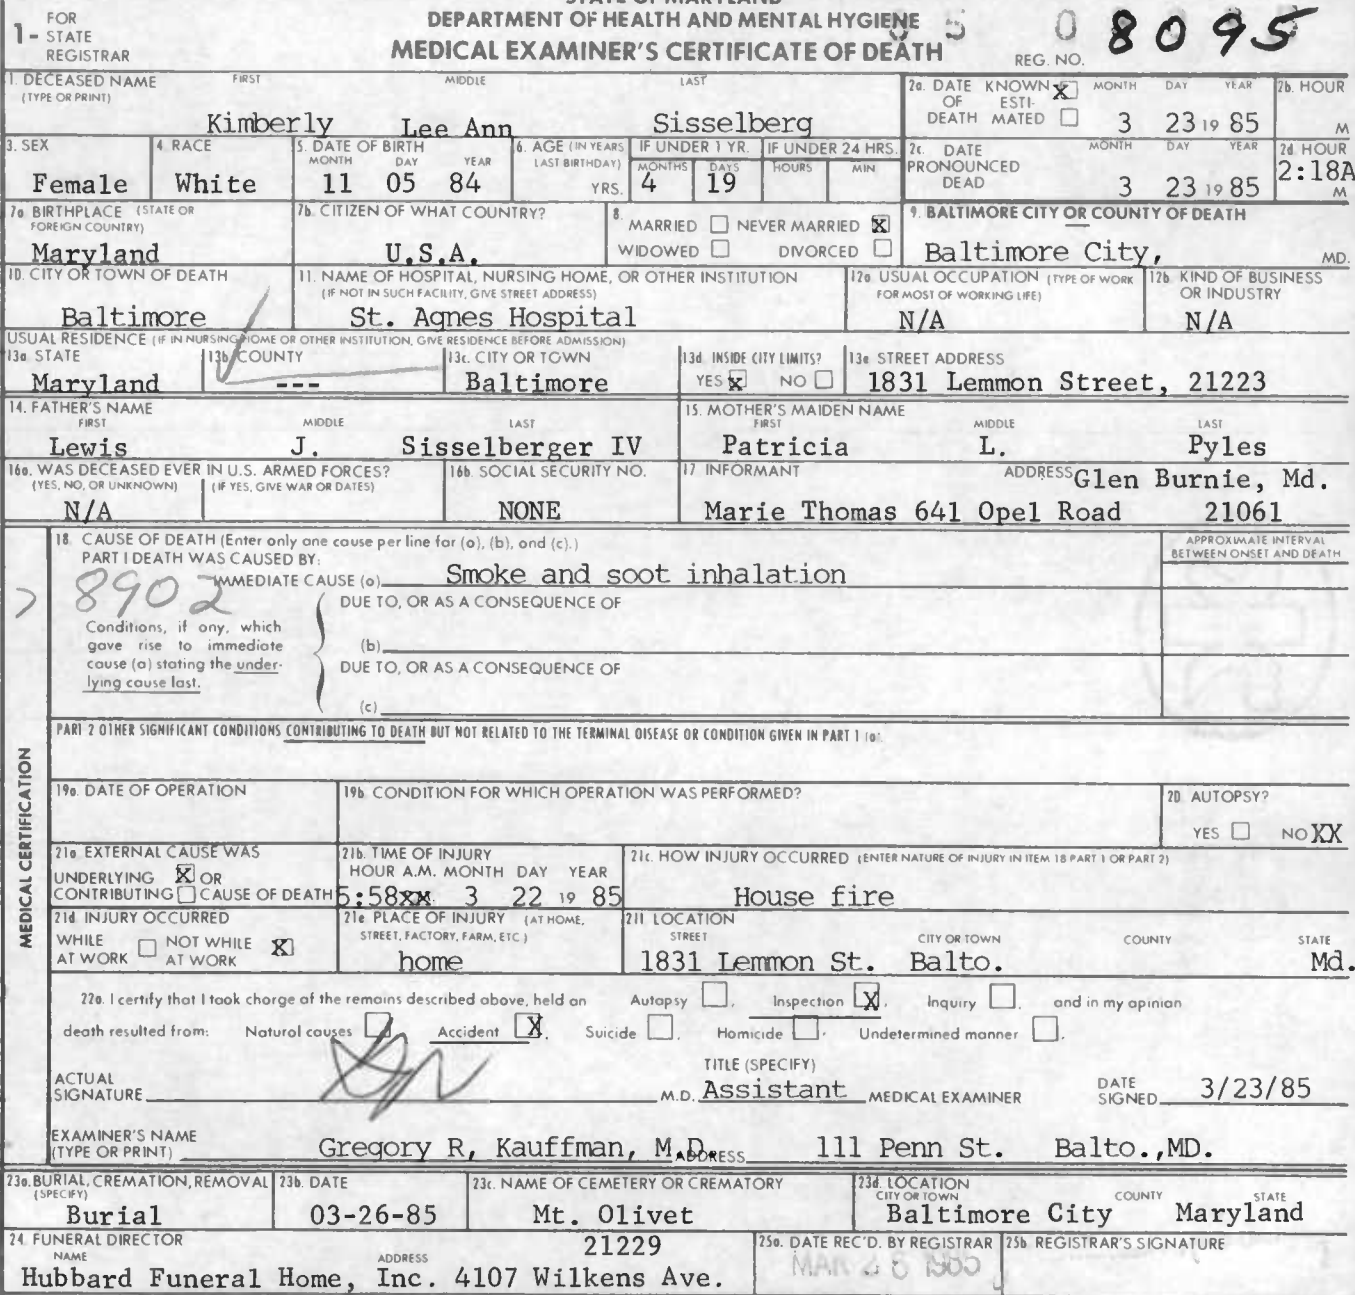 STATE OF MARYLAND
DEPARTMENT OF HEALTH AND MENTAL HYGIENE
MEDICAL EXAMINER'S CERTIFICATE OF DEATH
1- FOR STATE REGISTRAR
REG. NO. 8095
1. DECEASED NAME (TYPE OR PRINT) FIRST MIDDLE LAST
Kimberly Lee Ann Sisselberg
2a. DATE OF DEATH KNOWN X ESTIMATED MONTH DAY YEAR
3 23 19 85
2b. HOUR M
3. SEX Female
4. RACE White
5. DATE OF BIRTH MONTH DAY YEAR
11 05 84
6. AGE (IN YEARS LAST BIRTHDAY) YRS.
IF UNDER 1 YR. MONTHS 4 DAYS 19
IF UNDER 24 HRS. HOURS MIN
2c. DATE PRONOUNCED DEAD MONTH DAY YEAR
3 23 19 85
2d. HOUR 2:18A M
7a. BIRTHPLACE (STATE OR FOREIGN COUNTRY)
Maryland
7b. CITIZEN OF WHAT COUNTRY?
U.S.A.
8. MARRIED NEVER MARRIED X WIDOWED DIVORCED
9. BALTIMORE CITY OR COUNTY OF DEATH
Baltimore City, MD.
10. CITY OR TOWN OF DEATH
Baltimore
11. NAME OF HOSPITAL, NURSING HOME, OR OTHER INSTITUTION
(IF NOT IN SUCH FACILITY, GIVE STREET ADDRESS)
St. Agnes Hospital
12a. USUAL OCCUPATION (TYPE OF WORK FOR MOST OF WORKING LIFE)
N/A
12b. KIND OF BUSINESS OR INDUSTRY
N/A
USUAL RESIDENCE (IF IN NURSING HOME OR OTHER INSTITUTION, GIVE RESIDENCE BEFORE ADMISSION)
13a. STATE Maryland
13b. COUNTY ---
13c. CITY OR TOWN Baltimore
13d. INSIDE CITY LIMITS? YES X NO
13e. STREET ADDRESS
1831 Lemmon Street, 21223
14. FATHER'S NAME FIRST MIDDLE LAST
Lewis J. Sisselberger IV
15. MOTHER'S MAIDEN NAME FIRST MIDDLE LAST
Patricia L. Pyles
16a. WAS DECEASED EVER IN U.S. ARMED FORCES?
(YES, NO, OR UNKNOWN) (IF YES, GIVE WAR OR DATES)
N/A
16b. SOCIAL SECURITY NO.
NONE
17 INFORMANT ADDRESS Glen Burnie, Md.
Marie Thomas 641 Opel Road 21061
18. CAUSE OF DEATH (Enter only one cause per line for (a), (b), and (c).)
PART I DEATH WAS CAUSED BY:
IMMEDIATE CAUSE (a) Smoke and soot inhalation
8902
DUE TO, OR AS A CONSEQUENCE OF
Conditions, if any, which gave rise to immediate cause (a) stating the underlying cause last.
(b)
DUE TO, OR AS A CONSEQUENCE OF
(c)
APPROXIMATE INTERVAL BETWEEN ONSET AND DEATH
PART 2 OTHER SIGNIFICANT CONDITIONS CONTRIBUTING TO DEATH BUT NOT RELATED TO THE TERMINAL DISEASE OR CONDITION GIVEN IN PART 1 (a).
MEDICAL CERTIFICATION
19a. DATE OF OPERATION
19b. CONDITION FOR WHICH OPERATION WAS PERFORMED?
20 AUTOPSY?
YES NO XX
21a. EXTERNAL CAUSE WAS
UNDERLYING X OR
CONTRIBUTING CAUSE OF DEATH
21b. TIME OF INJURY
HOUR A.M. MONTH DAY YEAR
5:58xx 3 22 19 85
21c. HOW INJURY OCCURRED (ENTER NATURE OF INJURY IN ITEM 18 PART 1 OR PART 2)
House fire
21d. INJURY OCCURRED
WHILE AT WORK NOT WHILE AT WORK X
21e. PLACE OF INJURY (AT HOME, STREET, FACTORY, FARM, ETC.)
home
21f. LOCATION
STREET CITY OR TOWN COUNTY STATE
1831 Lemmon St. Balto. Md.
22a. I certify that I took charge of the remains described above, held an Autopsy , Inspection X , Inquiry , and in my opinion
death resulted from: Natural causes , Accident X , Suicide , Homicide , Undetermined manner .
ACTUAL SIGNATURE
TITLE (SPECIFY)
M.D. Assistant MEDICAL EXAMINER
DATE SIGNED 3/23/85
EXAMINER'S NAME (TYPE OR PRINT) Gregory R, Kauffman, M.D. ADDRESS 111 Penn St. Balto.,MD.
23a. BURIAL, CREMATION, REMOVAL (SPECIFY)
Burial
23b. DATE
03-26-85
23c. NAME OF CEMETERY OR CREMATORY
Mt. Olivet
23d. LOCATION CITY OR TOWN COUNTY STATE
Baltimore City Maryland
24. FUNERAL DIRECTOR
NAME ADDRESS 21229
Hubbard Funeral Home, Inc. 4107 Wilkens Ave.
25a. DATE REC'D. BY REGISTRAR
25b. REGISTRAR'S SIGNATURE